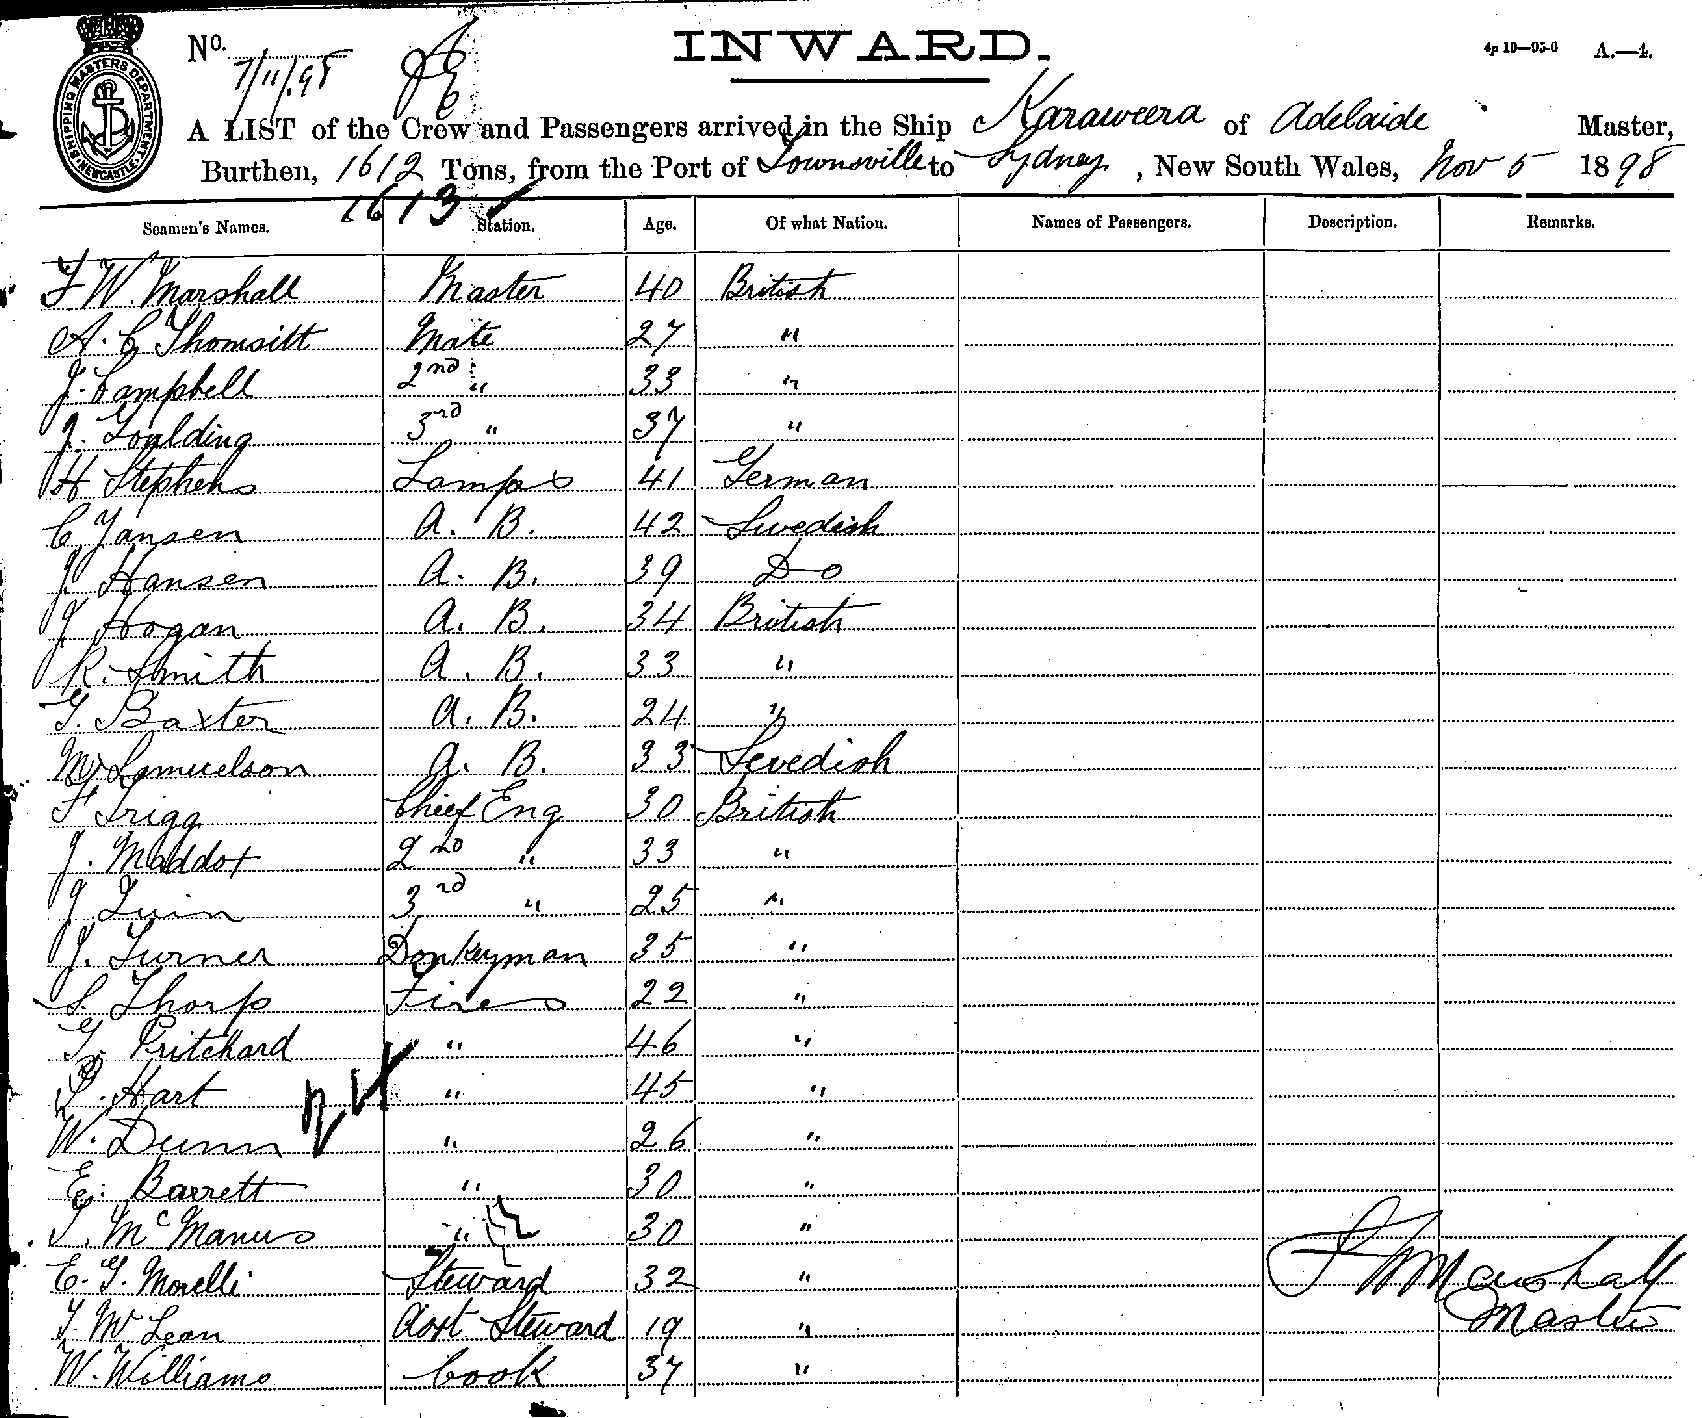 No. 7/11/98
INWARD.
4p 10—95-0 A.—4.
SHIPPING MASTERS DEPARTMENT NEWCASTLE
A LIST of the Crew and Passengers arrived in the Ship Karaweera of Adelaide, Master,
Burthen, 1612 Tons, from the Port of Townsville to Sydney, New South Wales, Nov 5 1898
1613
Seamen's Names. Station. Age. Of what Nation. Names of Passengers. Description. Remarks.
F W. Marshall Master 40 British
A. C Thomsitt Mate 27 "
J. Campbell 2nd " 33 "
J. Goulding 3rd " 37 "
H Stephens Lamps 41 German
C Jansen A. B. 42 Swedish
J. Hansen A. B. 39 Do
J Hogan A. B. 34 British
R. Smith A. B. 33 "
G. Baxter A. B. 24 "
M Samuelson A. B. 33 Swedish
F Trigg Chief Eng 30 British
J. Maddox 2nd " 33 "
J Quin 3rd " 25 "
J. Turner Donkeyman 35 "
S. Thorp Fires 22 "
G. Pritchard " 46 "
P. Hart " 45 "
W. Dunn " 26 "
E. Barrett " 30 "
T. McManus " 30 "
E. G. Morelli Steward 32 "
T. McLean Asst Steward 19 "
W. Williams Cook 37 "
F W Marshall
Master
24